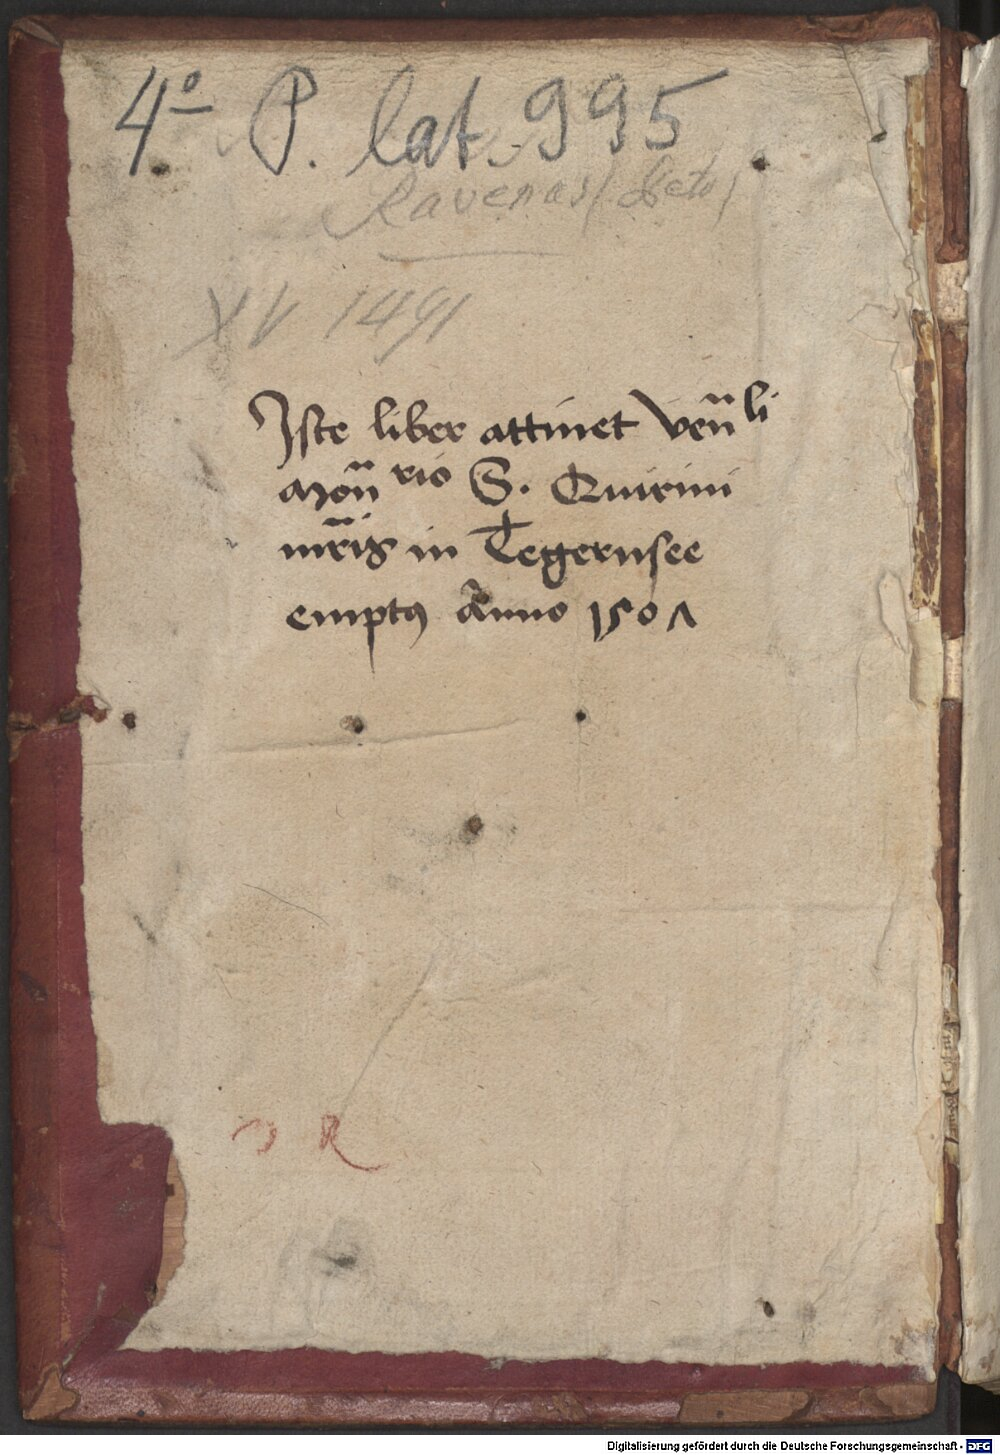 4º P. lat. 995
Ravenas (Petr)
XV 1491
Iste liber attinet Ven̄li
Mon̄rio S. Quirini
mr̄is in Tegernsee
emptꝯ Anno 1507
R
Digitalisierung gefördert durch die Deutsche Forschungsgemeinschaft - DFG